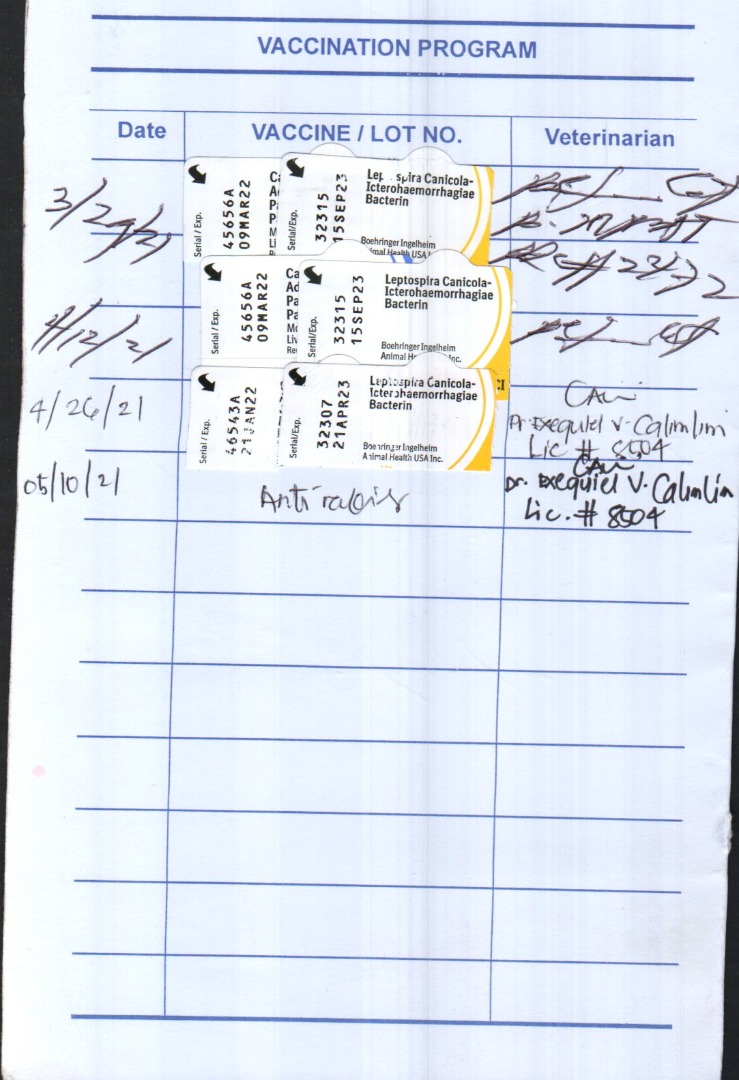 VACCINATION PROGRAM
Date VACCINE / LOT NO. Veterinarian
Serial / Exp.
45656A
09MAR22
Serial/Exp.
32315
15SEP23
Leptospira Canicola-
Icterohaemorrhagiae
Bacterin
Boehringer Ingelheim
Animal Health USA
Serial / Exp.
45656A
09MAR22
Ca
Ad
Pa
Pa
Mo
Liv
Serial / Exp.
32315
15SEP23
Leptospira Canicola-
Icterohaemorrhagiae
Bacterin
Boehringer Ingelheim
Animal Health Inc.
4/12/21
4/26/21
Serial / Exp.
46543A
21JAN22
Serial/Exp.
32307
21APR23
Leptospira Canicola-
Icterohaemorrhagiae
Bacterin
Boehringer Ingelheim
Animal Health USA Inc.
CI
Dr. Exequiel V. Calimlim
Lic # 8504
05/10/21
Anti rabies
Dr. Exequiel V. Calimlim
Lic. # 8504